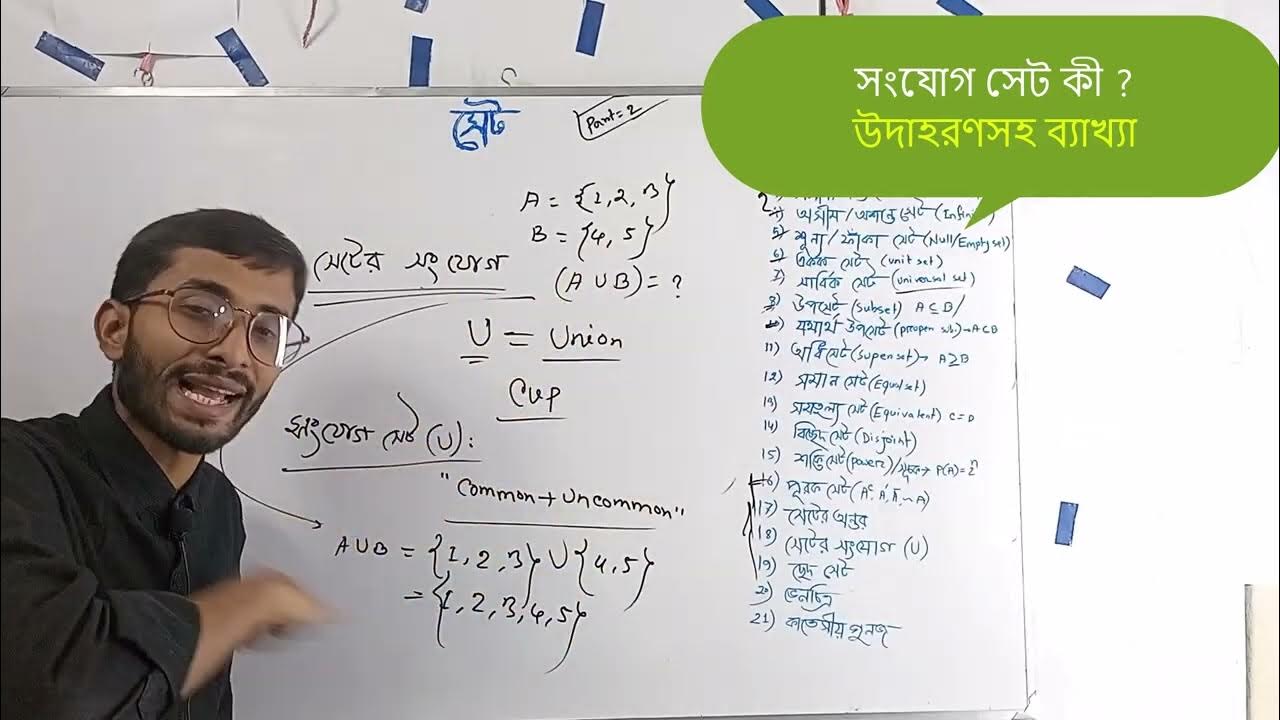 সংযোগ সেট কী ?
উদাহরণসহ ব্যাখ্যা
সেট
Part=2
A = {1, 2, 3}
B = {4, 5}
(A ∪ B) = ?
সেটের সংযোগ
U = Union
Cup
সংযোগ সেট (U):
"Common + Uncommon"
A∪B = {1, 2, 3} ∪ {4, 5}
= {1, 2, 3, 4, 5}
অসীম / অশান্ত সেট (Infini)
5) শূন্য / ফাঁকা সেট (Null/Empty set)
6) একক সেট (unit set)
7) সার্বিক সেট (universal set)
8) উপসেট (Subset) A ⊆ B/
যথার্থ উপসেট (propen sub) → A⊂B
11) অধিসেট (Supen set) → A⊇B
12) সমান সেট (Equal set)
13) সমতুল্য সেট (Equivalent) C = D
14) বিচ্ছেদ সেট (Disjoint)
15) শক্তি সেট (power) / সূচক → P(A) = 2ⁿ
16) পূরক সেট
17) সেটের অন্তর
18) সেটের সংযোগ (U)
19) ছেদ সেট
20) ভেনচিত্র
21) কার্তেসীয় গুনজ